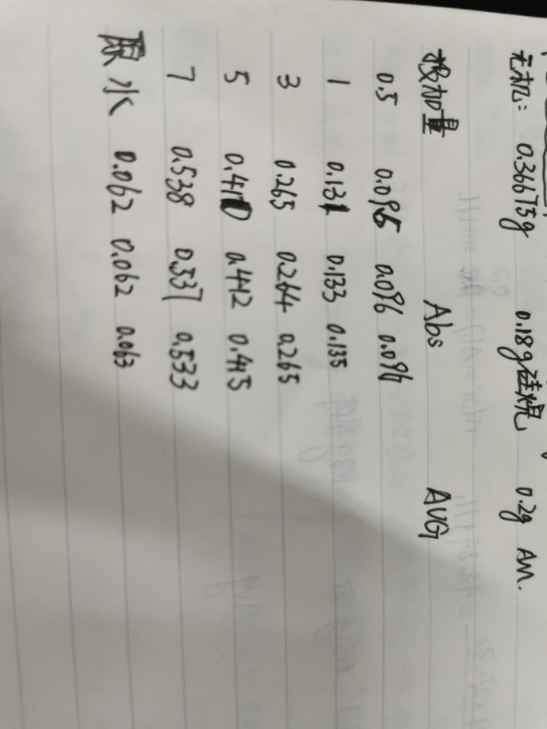 无机: 0.36675g 0.18g硅烷 0.2g AM.
投加量 Abs AVG
0.5 0.095 0.096 0.096
1 0.131 0.133 0.135
3 0.265 0.264 0.265
5 0.410 0.412 0.415
7 0.538 0.537 0.533
原水 0.062 0.062 0.063